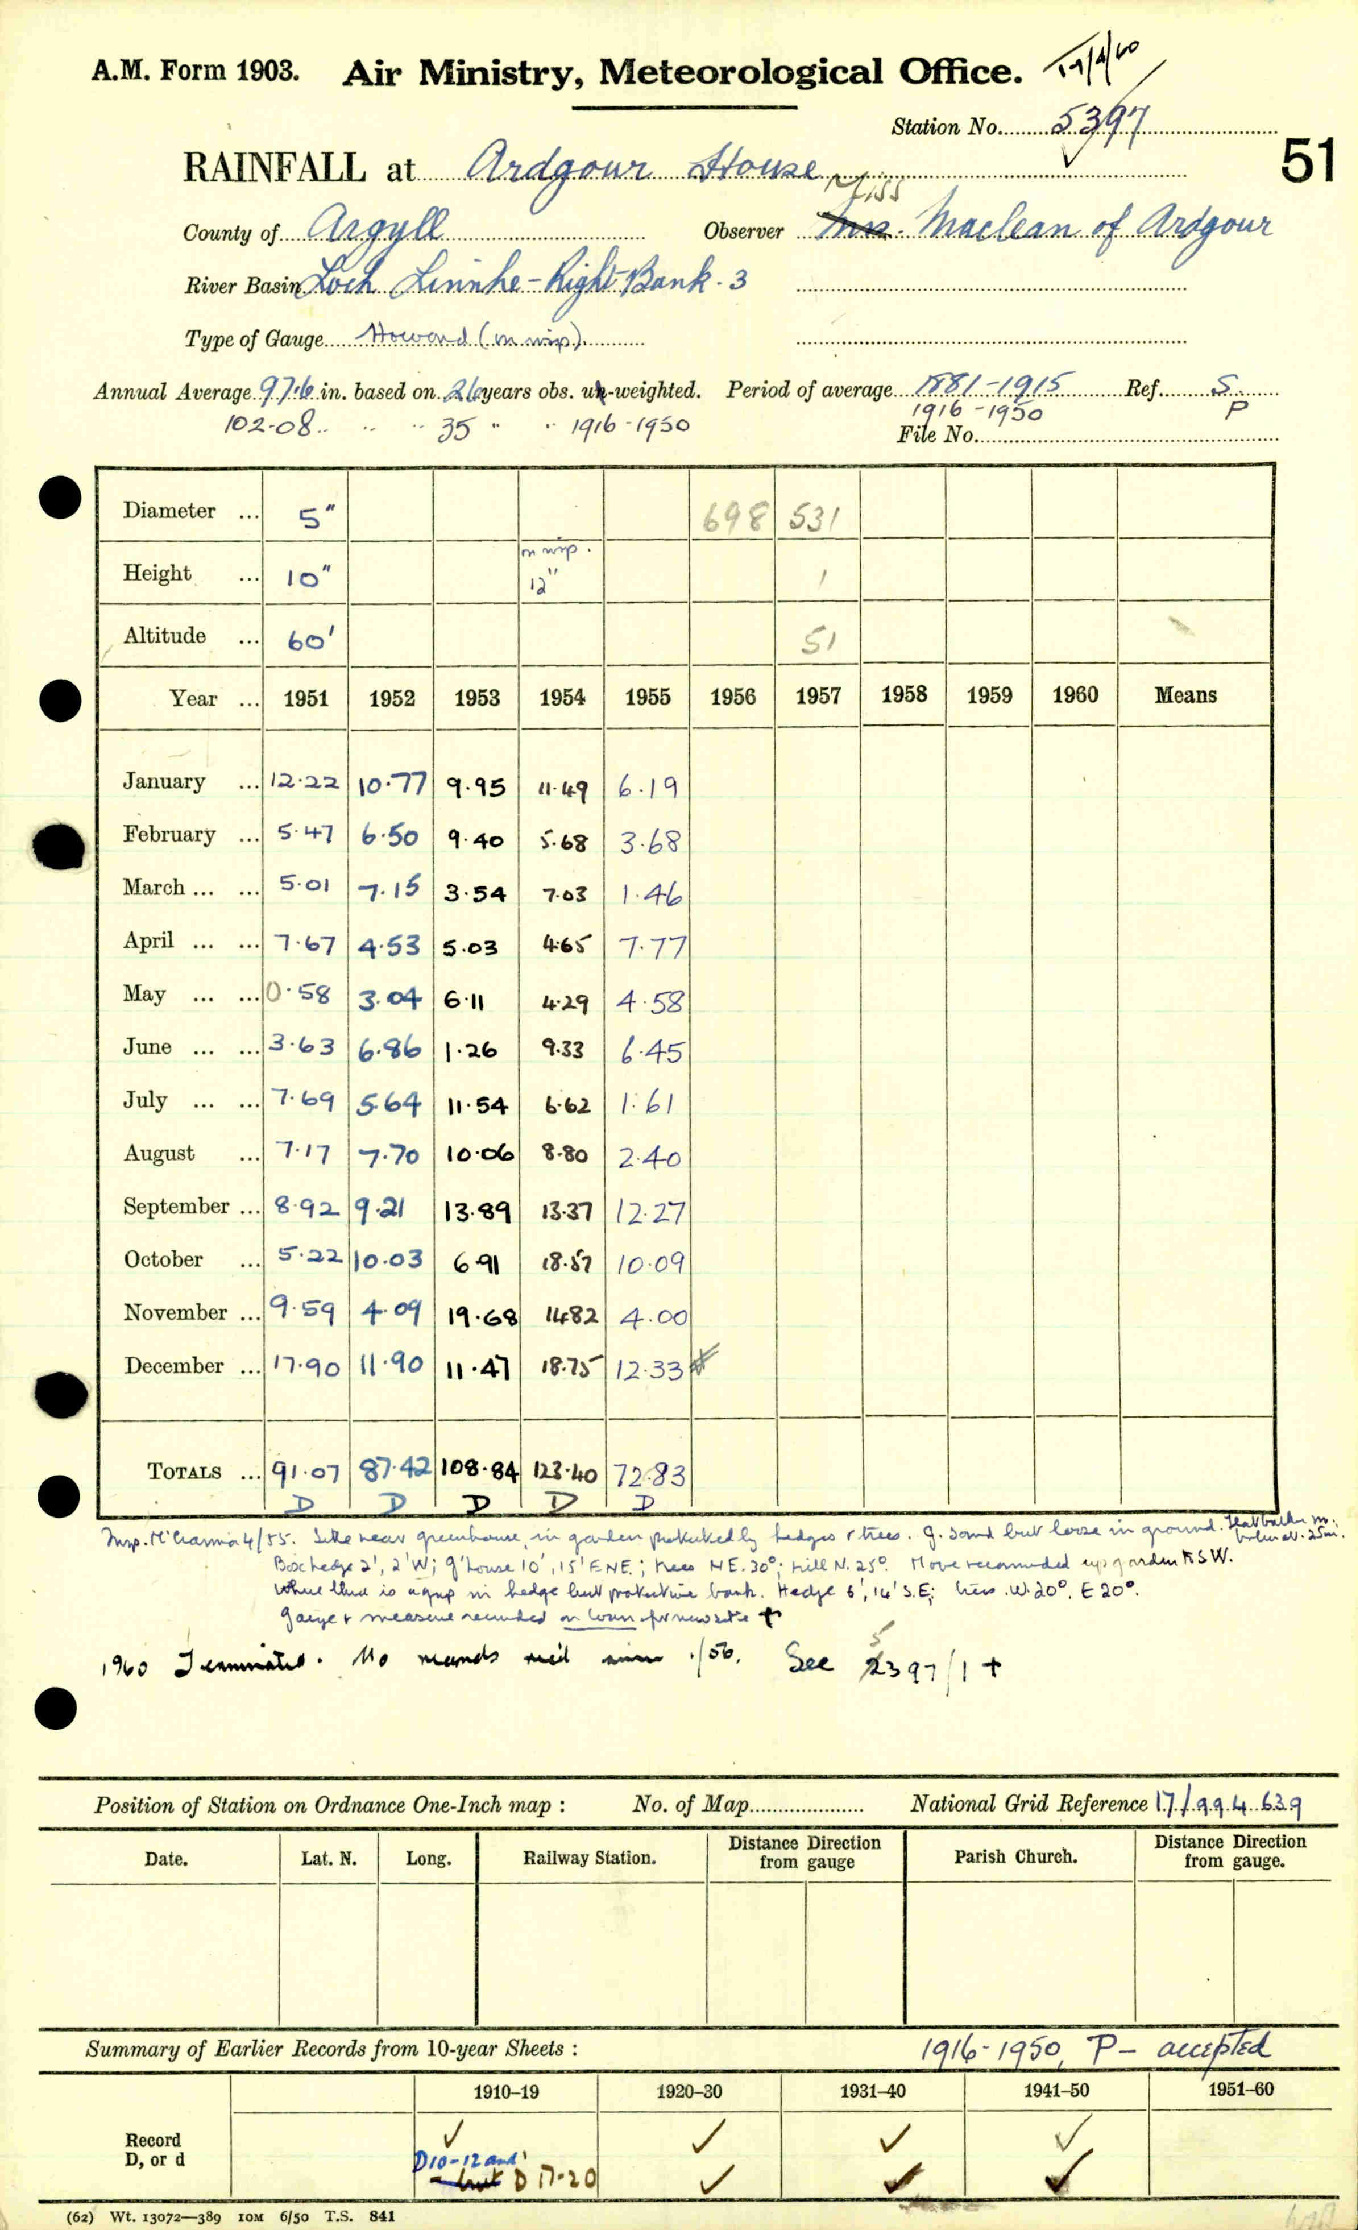 A.M. Form 1903. Air Ministry, Meteorological Office. 19/4/60
Station No. 5397
51
RAINFALL at Ardgour House
Miss
County of Argyll Observer Mrs. Maclean of Ardgour
River Basin Loch Linnhe - Right Bank - 3
Type of Gauge Howard (on insp).
Annual Average 97.6 in. based on 26 years obs. un-weighted. Period of average 1881-1915 Ref. S.
1916-1950 P
102.08 .. .. .. 35 " " 1916-1950
File No.
Diameter ... 5" 698 531
Height ... 10" on insp. 12" 1
Altitude ... 60' 51
Year ... 1951 1952 1953 1954 1955 1956 1957 1958 1959 1960 Means
January ... 12.22 10.77 9.95 11.49 6.19
February ... 5.47 6.50 9.40 5.68 3.68
March ... ... 5.01 7.15 3.54 7.03 1.46
April ... ... 7.67 4.53 5.03 4.65 7.77
May ... ... 0.58 3.04 6.11 4.29 4.58
June ... ... 3.63 6.86 1.26 9.33 6.45
July ... ... 7.69 5.64 11.54 6.62 1.61
August ... 7.17 7.70 10.06 8.80 2.40
September ... 8.92 9.21 13.89 13.37 12.27
October ... 5.22 10.03 6.91 18.57 10.09
November ... 9.59 4.09 19.68 14.82 4.00
December ... 17.90 11.90 11.47 18.75 12.33 #
TOTALS ... 91.07 87.42 108.84 123.40 72.83
D D D D D
Insp. 4/55. Site near greenhouse, in garden protected by hedges & trees. g. sound but loose in ground.
Box hedge 2', 2'W; g'house 10', 15' ENE; trees NE. 30°; hill N. 25°. Move recommended up garden SSW.
where there is a gap in hedge but protective bank. Hedge 6', 14' S.E; trees W. 20°. E 20°.
gauge & measure on loan for new site +
1960 Terminated. No records rec'd since 1/56. See 5397/1 +
Position of Station on Ordnance One-Inch map : No. of Map National Grid Reference 17/994 639
Date. Lat. N. Long. Railway Station. Distance Direction from gauge Parish Church. Distance Direction from gauge.
Summary of Earlier Records from 10-year Sheets : 1916-1950, P- accepted
1910-19 1920-30 1931-40 1941-50 1951-60
Record ✓ ✓ ✓ ✓
D, or d D10-12 and D 17-20 ✓ ✓ ✓
(62) Wt. 13072—389 10M 6/50 T.S. 841